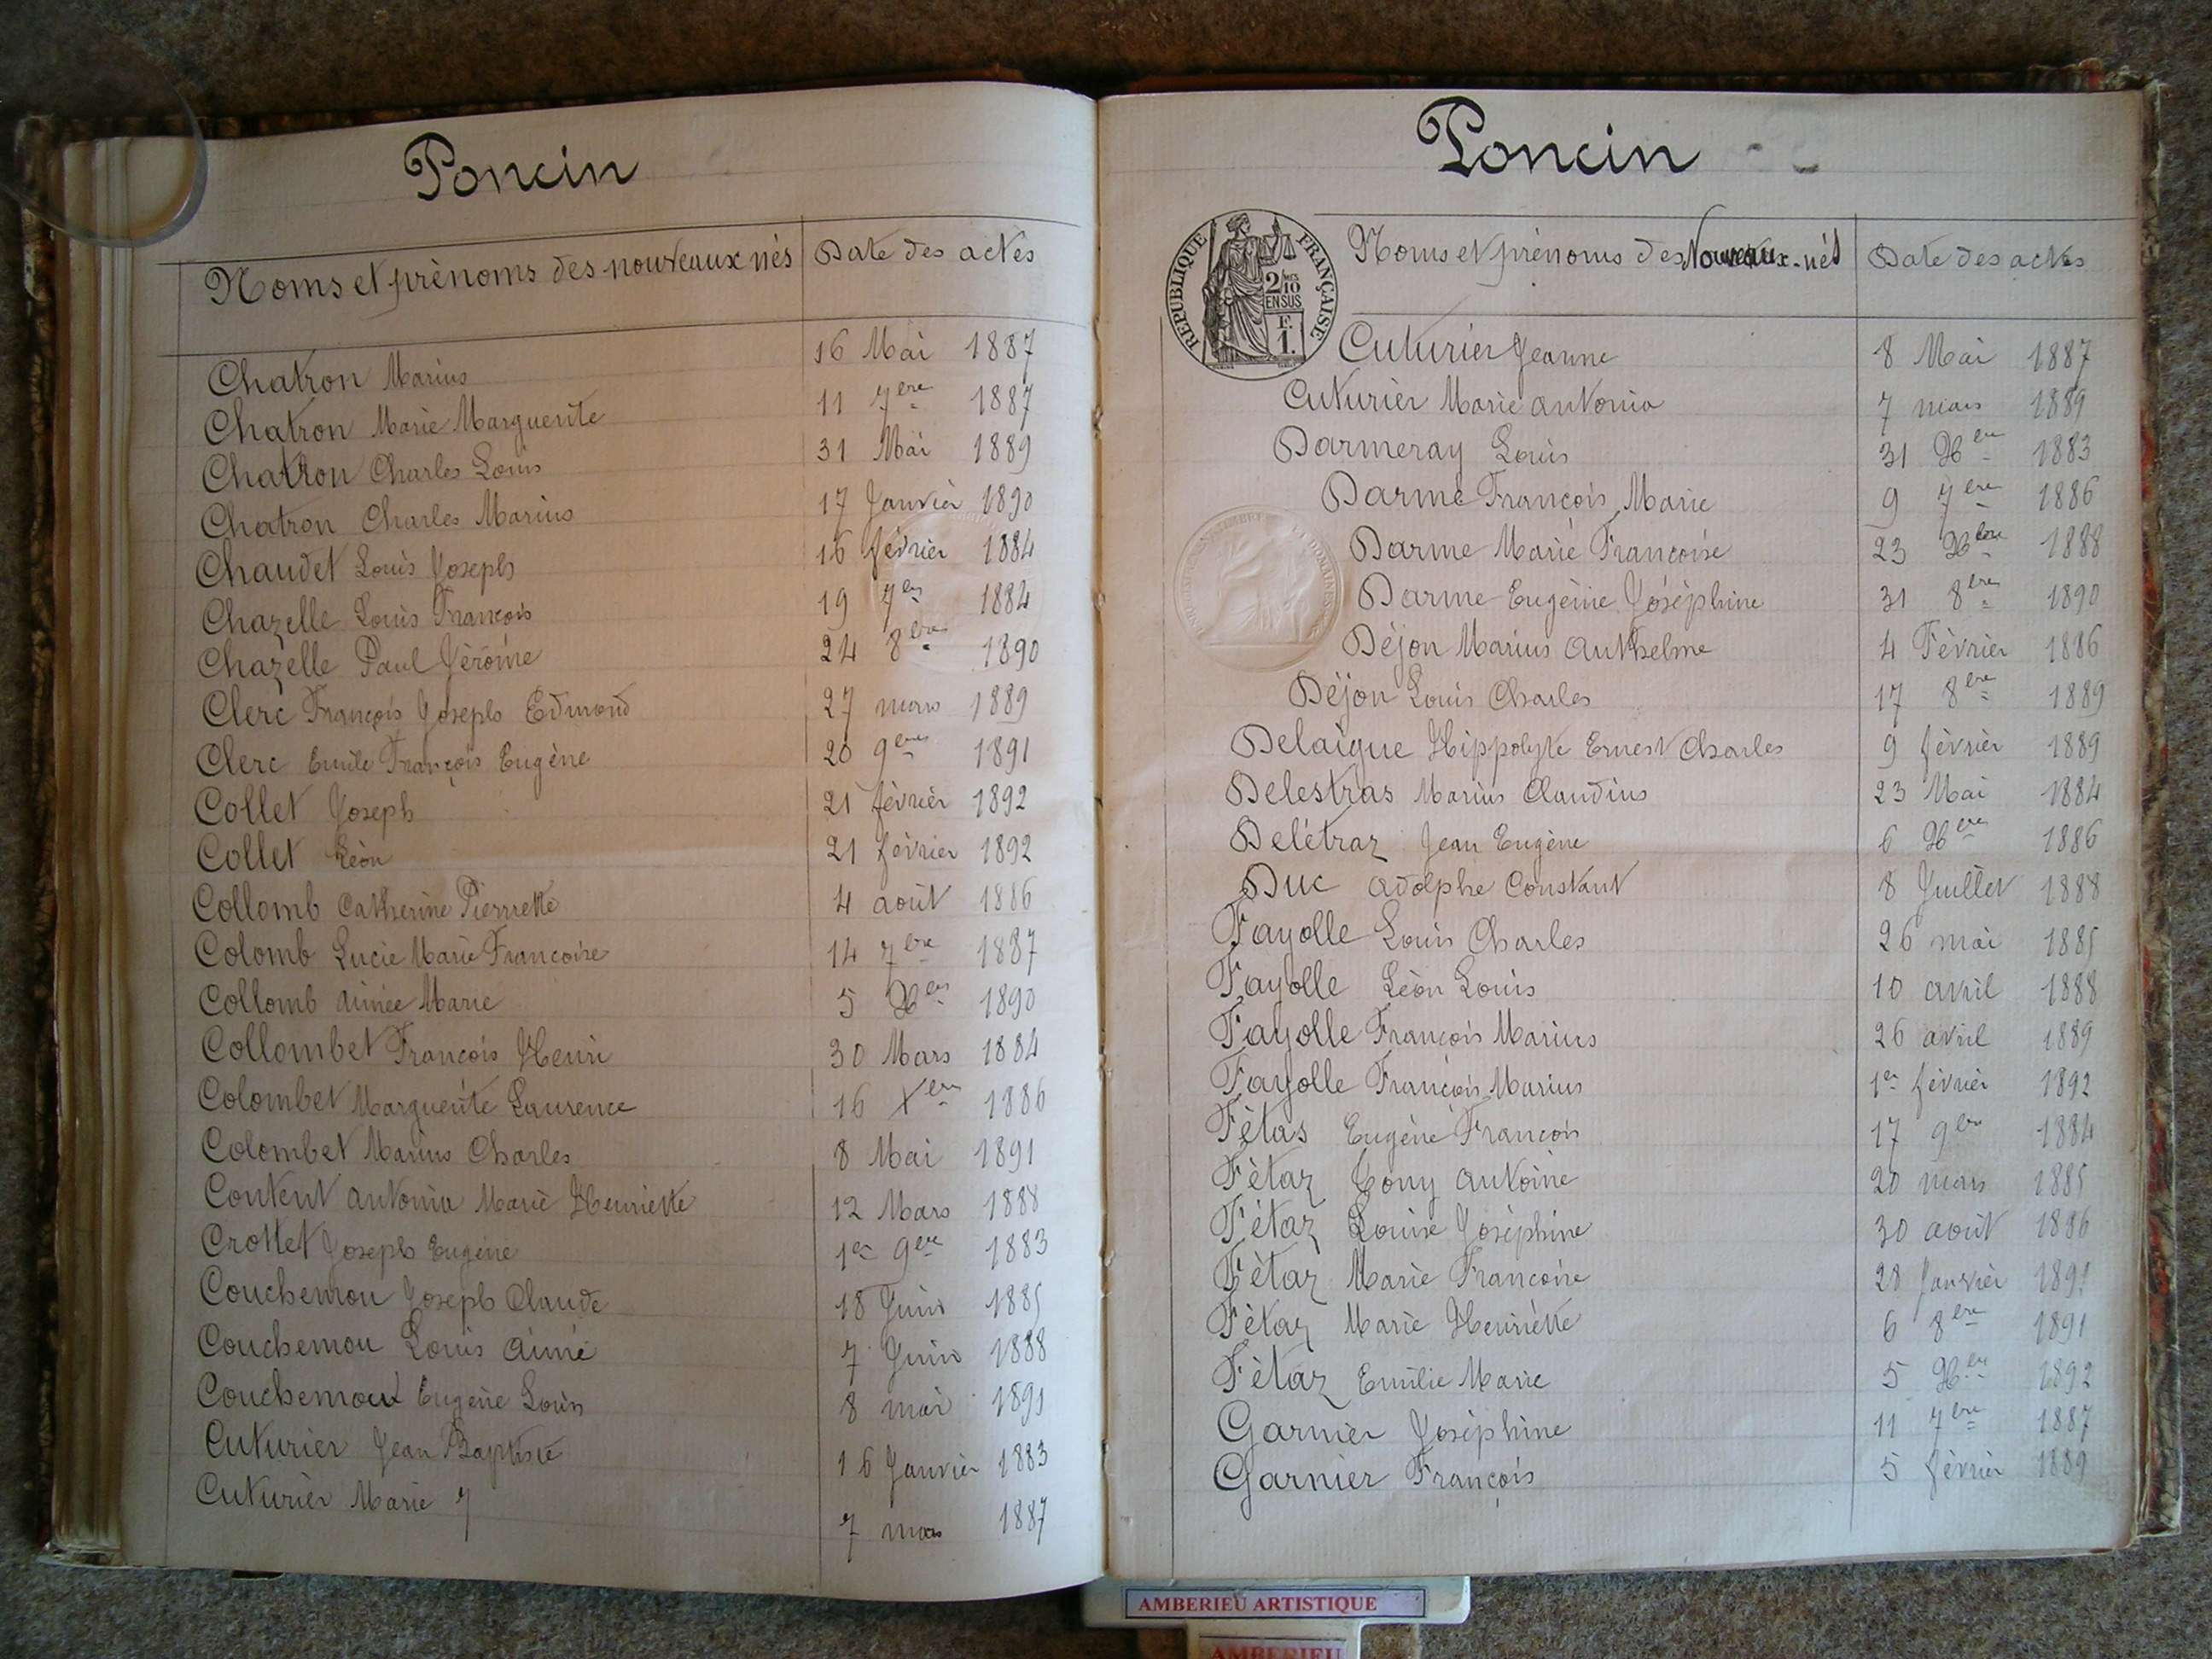 Poncin
Noms et prènoms des nouveaux nés Date des actes
Chatron Marius 16 Mai 1887
Chatron Marie Marguerite 11 7ere 1887
Chatron Charles Louis 31 Mai 1889
Chatron Charles Marius 17 Janvier 1890
Chaudet Louis Joseph 16 février 1884
Chazelle Louis François 19 7er 1884
Chazelle Paul Jérôme 24 8bre 1890
Clerc François Joseph Edmond 27 mars 1889
Clerc Emile François Eugène 20 9ere 1891
Collet Joseph 21 février 1892
Collet Léon 21 février 1892
Collomb Catherine Pierrette 4 août 1886
Colomb Lucie Marie Francoise 14 7bre 1887
Collomb Aimée Marie 5 Xber 1890
Collombet François Henri 30 Mars 1884
Colombet Marguerite Laurence 16 Xere 1886
Colombet Marius Charles 8 Mai 1891
Content Antonia Marie Henriette 12 Mars 1888
Crottet Joseph Eugène 1er 9ere 1883
Couchemou Joseph Claude 18 Juin 1885
Couchemou Louis Aimé 7 Juin 1888
Couchemoux Eugène Louis 8 mai 1891
Cuturier Jean Baptiste 16 Janvier 1883
Cuturier Marie 7 7 mars 1887
Poncin
REPUBLIQUE FRANÇAISE
2/10 EN SUS
F. 1.
Noms et prénoms des Nouveaux-nés Date des actes
Cuturier Jeanne 8 Mai 1887
Cuturier Marie Antonia 7 mars 1889
Darmeray Louis 31 Xbere 1883
Darme François Marie 9 7ere 1886
Darme Marie Françoise 23 Xbere 1888
Darme Eugènie Joséphine 31 8bre 1890
Déjon Marius Anthelme 4 Février 1886
Déjon Louis Charles 17 8bre 1889
Delaigue Hippolyte Ernest Charles 9 février 1889
Delestras Marius Claudius 23 Mai 1884
Delétraz Jean Eugène 6 Xbere 1886
Duc Adolphe Constant 8 Juillet 1888
Fayolle Louis Charles 26 mai 1885
Fayolle Léon Louis 10 avril 1888
Fayolle François Marius 26 avril 1889
Fayolle François Marius 1er février 1892
Fètas Eugène François 17 9bre 1884
Fètaz Tony Antoine 20 mars 1885
Fétaz Louise Joséphine 30 août 1886
Fètaz Marie Francoise 28 Janvier 1891
Fètaz Marie Henriette 6 8ere 1891
Fètaz Emilie Marie 5 Xber 1892
Garnier Joséphine 11 7bre 1887
Garnier François 5 février 1889
AMBERIEU ARTISTIQUE
AMBERIEU